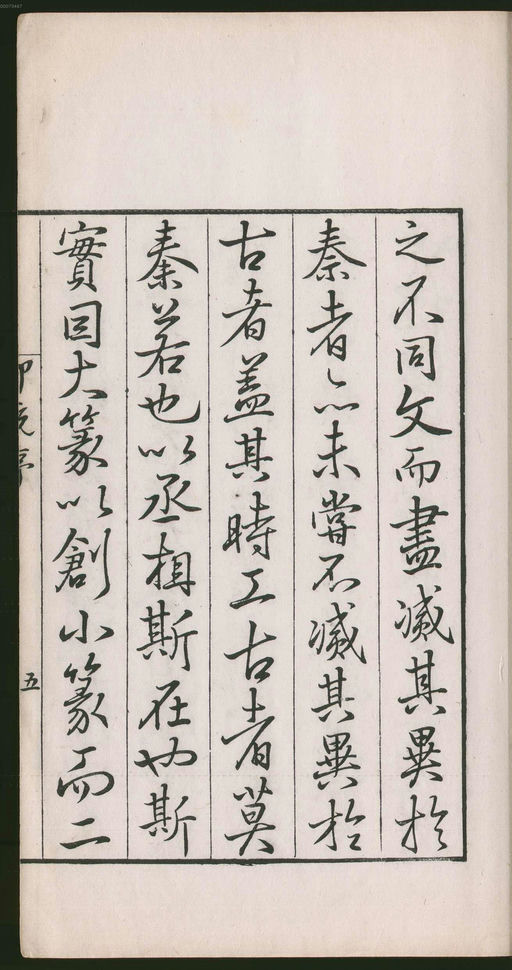 之不同文而盡滅其異於
秦者亦未嘗不滅其異於
古者蓋其時工古者莫
秦若也以丞相斯在也斯
實因大篆以創小篆而二
五
00073487